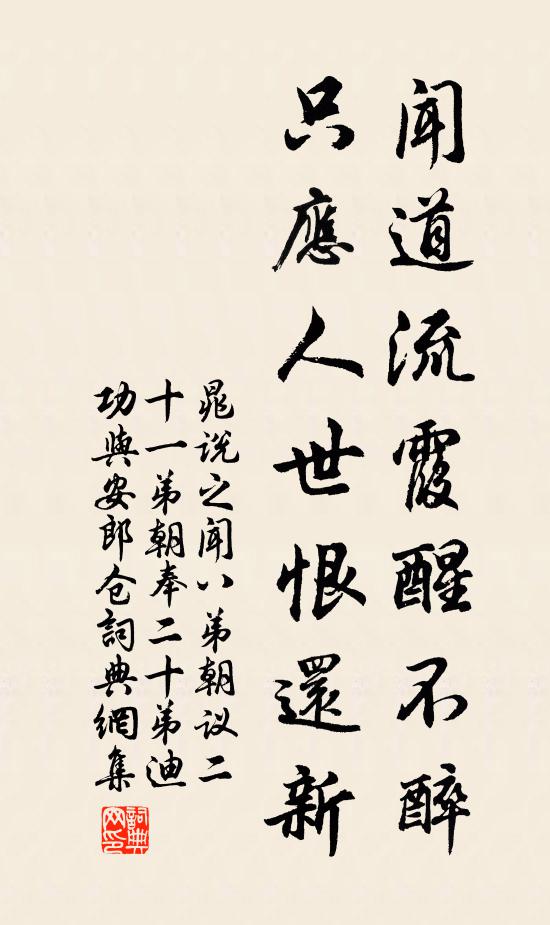 聞道流霞醒不醉
只應人世恨還新
晁说之聞八弟朝议二
十一弟朝奉二十弟迪
功與安郎仓詞典網集
詞典
网印